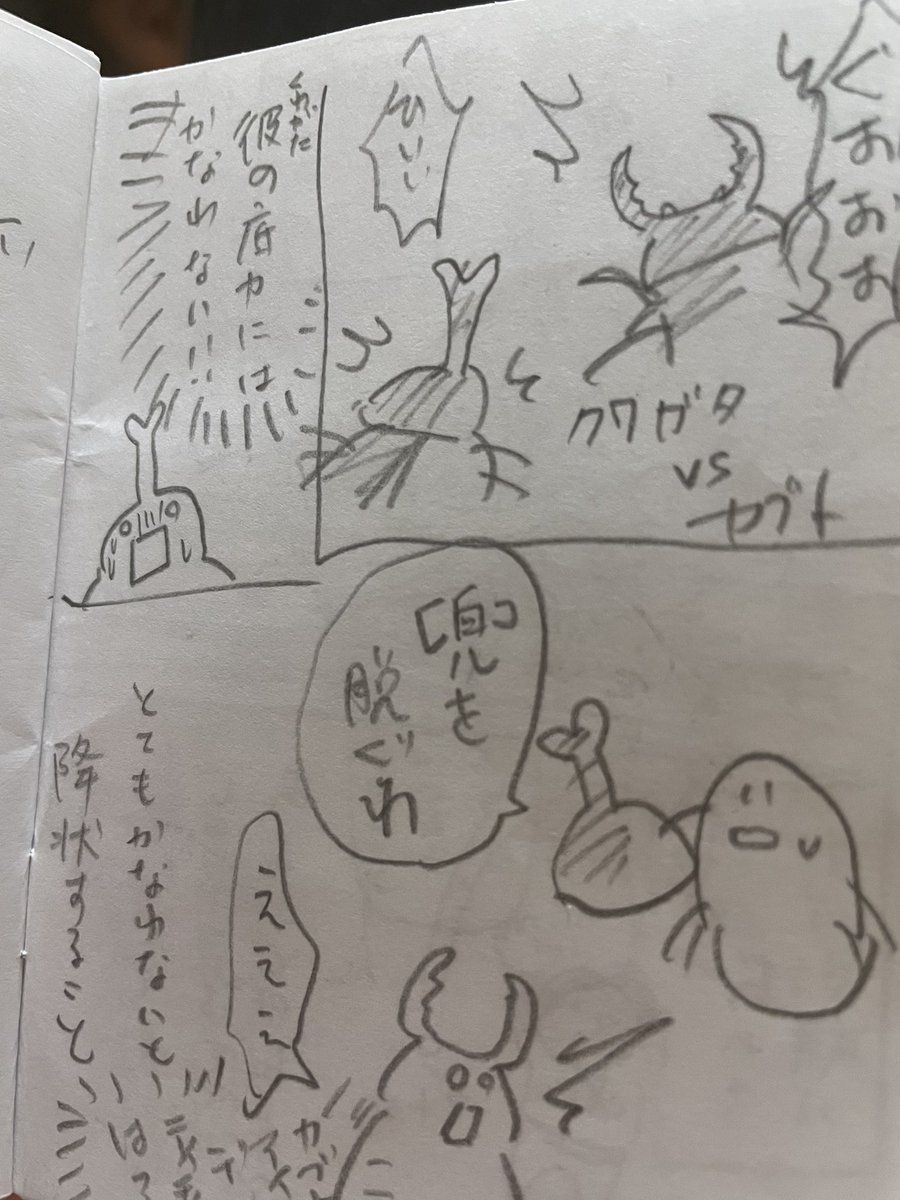 ぐおおお
ひぃぃ
クワガタ
vs
カブト
彼の底力には
かなわない!!
「兜」を
脱ぐわ
えええ
とてもかなわないと
降状すること